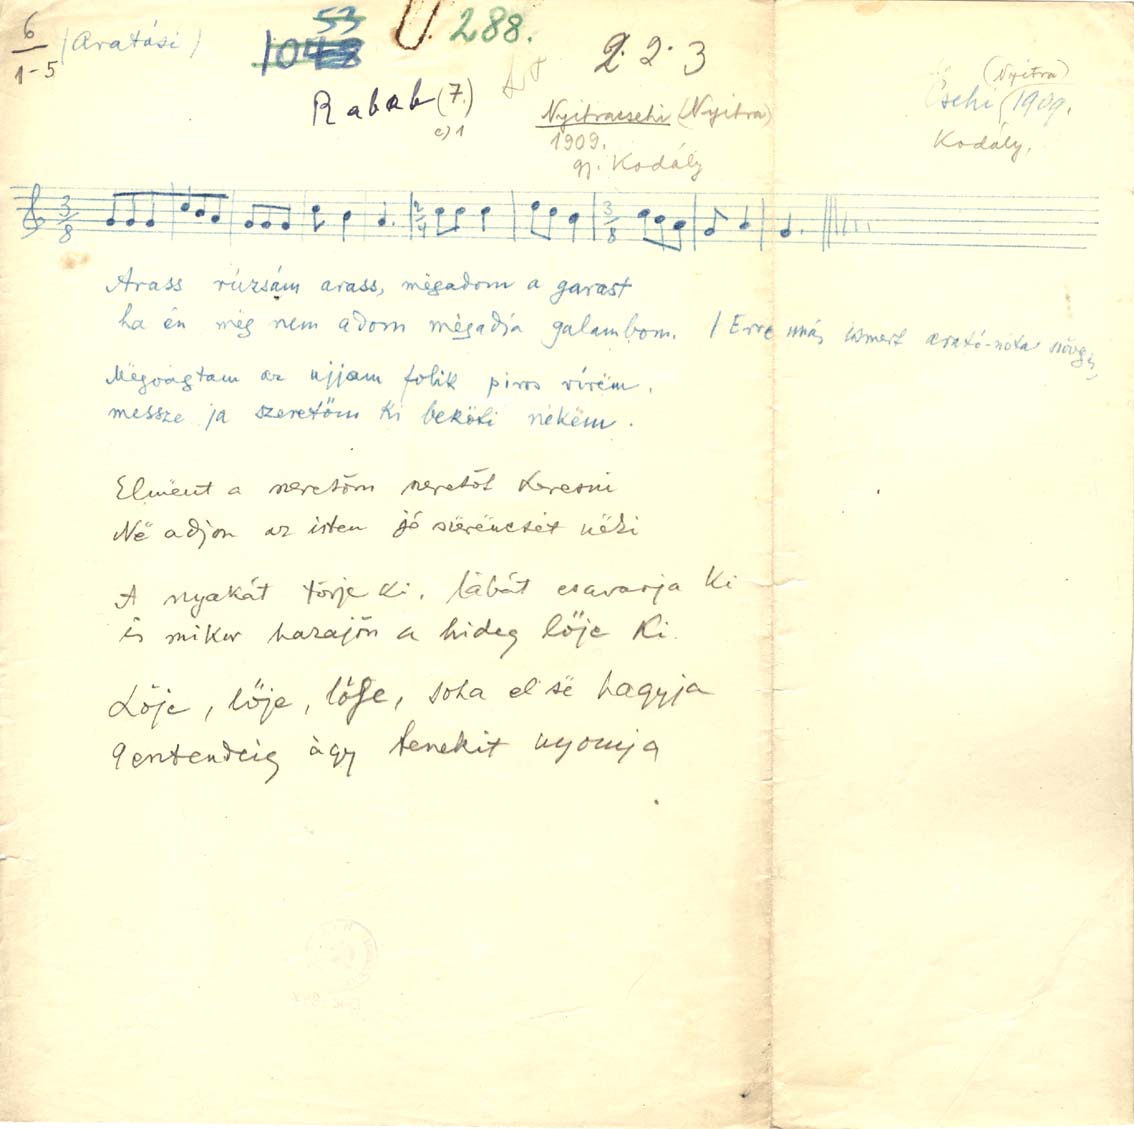 6
1-5
(Aratási)
53
1048
288.
2. 2. 3
Rabab (7.)
c) 1
Nyitracsehi (Nyitra)
1909.
gy. Kodály
(Nyitra)
Csehi (1909.
Kodály.
3/8 2/4 3/8
Arass rúzsám arass, mëgadom a garast
ha én mëg nem adom mëgadja galambom. / Erre más ismert arató-nóta
Mëgvágtam az ujjam folik piros vírëm,
messze ja szeretőm ki beköti nékëm.
Elmënt a szeretőm szeretőt keresni
Në adjon az isten jó szërëncsét nëki
A nyakát törje ki, lábát csavarja ki
és mikor hazajön a hideg lője ki.
Lője, lője, lőjje, soha el së hagyja
ágy fenekit nyomja